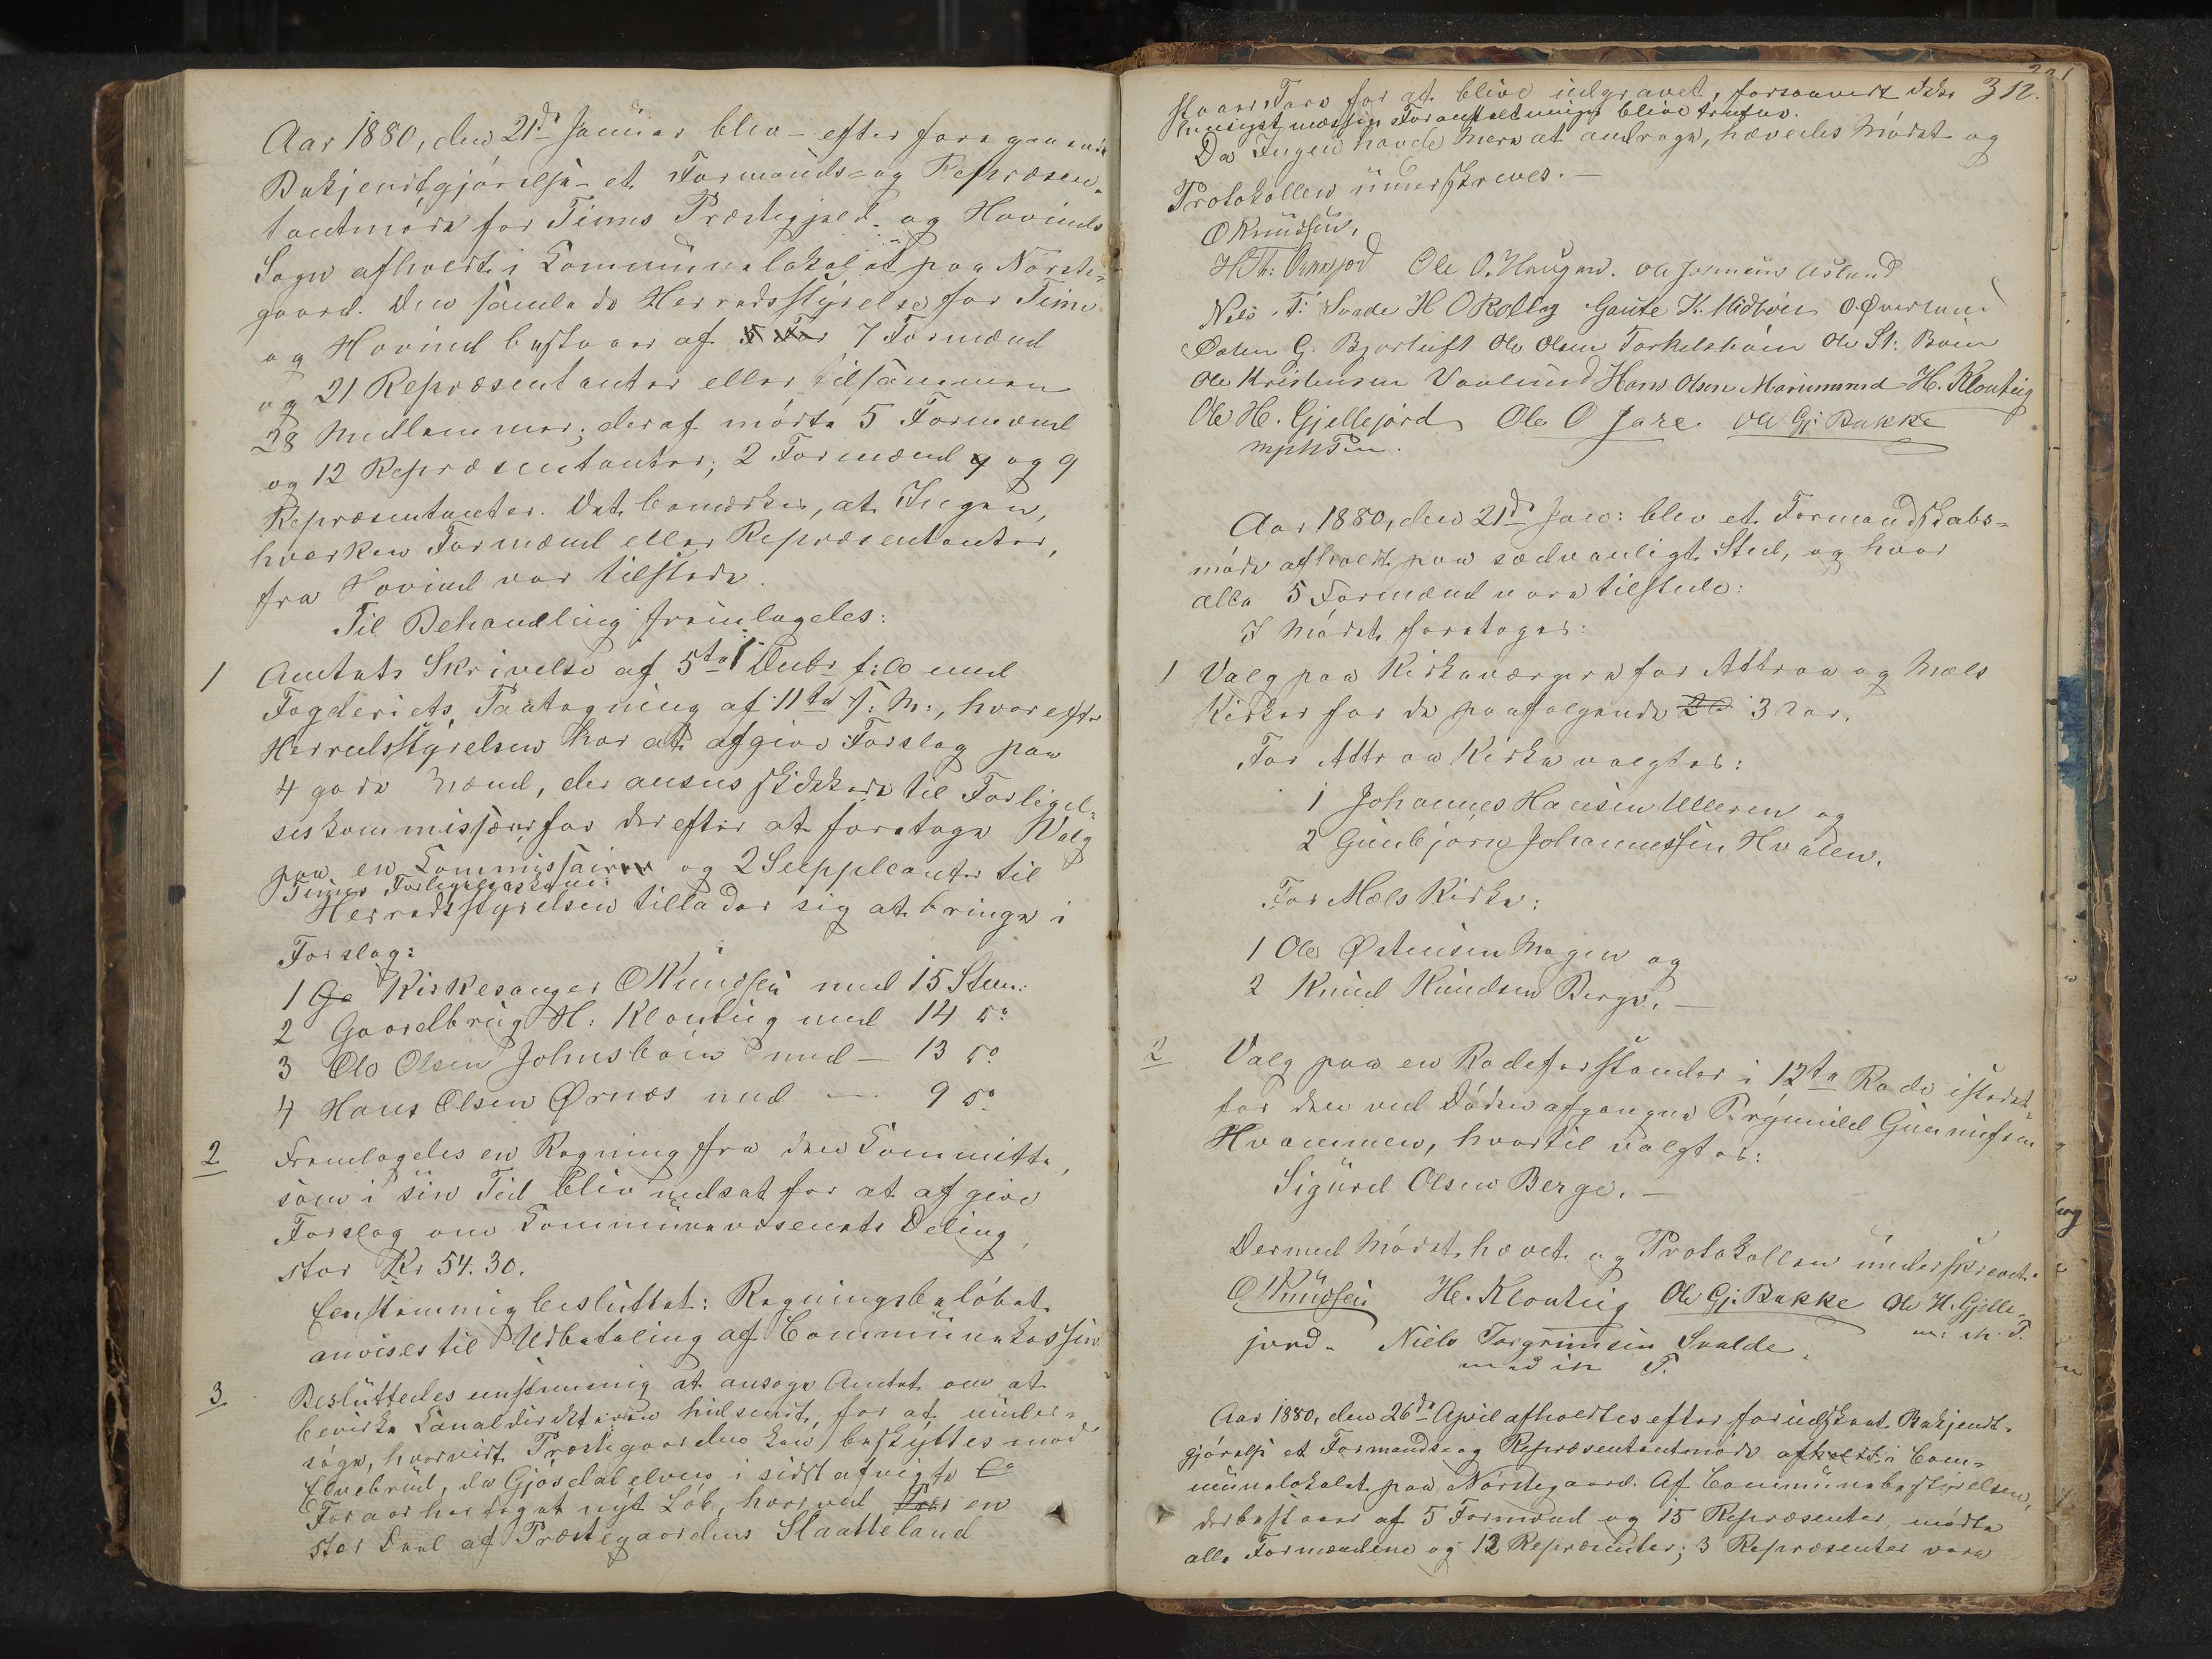 Aar 1880, den 21de Januar blev – efter foregaaende
Bekjendtgjørelse – et Formands- og Repræsen-
tantmøde for Tinns Præstegjeld og Hovinds
Sogn afholdt i Communelokalet paa Nørste-
gaard. Den samlede Herredsstyrelse for Tinn
og Hovind bestaaer af 7 Formænd
og 21 Repræsentanter eller tilsammen
28 Medlemmer; deraf mødte 5 Formænd
og 12 Repræsentanter; 2 Formænd og 9
Repræsentanter. Det bemærkes, at Ingen,
hverken Formænd eller Repræsentanter,
fra Hovind var tilstede.
Til Behandling fremlagdes:
1 Amtets Skrivelse af 5te Decbr f: A med
Fogderiets Paategning af 11te s: M:, hvorefter
Herredsstyrelsen har at afgive Forslag paa
4 gode Mænd, der ansees skikkede til Forligel-
seskommissærer for derefter at foretage Valg
paa en Commissair og 2 Suppleanter til
Tinns Forligelseskom:
Herredsstyrelsen tillader sig at bringe i
Forslag:
1 Ga Kirkesanger O Knudsen med 15 Stem:
2 Gaardbrug H: Klonteig med 14 do
3 Ole Olsen Johnsbøen med – 13 do
4 Hans Olsen Ørnæs med – 9 do
2 Fremlagdes en Regning fra den Committe,
som i sin Tid blev nedsat for at afgive
Forslag om Communevæsenets Deling,
stor Kr 54.30.
Eenstemmig besluttet: Regningsbeløbet
anvises til Udbetaling af Communekassen
3. Besluttedes enstemmig at ansøge Amtet om at
bevirke Canaldirektøren hidsendt, for at under-
søge, hvorvidt Præstegaarden kan beskyttes mod
Elvebrud, da Gjøsdalelven i sidst afvigte
Foraar har taget nyt Løb, hvorved en
stor Deel af Præstegaardens Slaatteland
312.
staaer Fare for at blive udgravet, forsaavidt ikke
hensigtsmæssige Foranstaltninger blive trufne.
Da Ingen havde mere at andrage, hævedes Mødet og
Protokollen underskreves. –
O Knudsen,
Ole O. Haugen. Ole Johnsen Øsland
Nils T: Svade H O Rollag Gaute K. Midbøen O. Øverland
Østen G. Bjørtuft Ole Olsen Torkelsbøen Ole St: Bøen
Ole Kristensen Vaalund Hans Olsen Marumsrud H. Klonteig
Ole H. Gjellejord Ole O Jare Ole Gj. Bakke
mphPen.
Aar 1880, den 21de Jan: blev et Formandskabs-
møde afholdt paa sædvanligt Sted, og hvor
alle 5 Formænd vare tilstede:
I Mødet foretoges:
1 Valg paa Kirkeværgere for Attraa og Mæls
Kirker for de paafølgende 3 Aar.
For Attraa Kirke valgtes:
1 Johannes Hansen Ulleren og
2 Gunbjørn Johannessen Hvalen.
For Mæls Kirke:
1 Ole Østensen Mogen og
2 Knud Knudsen Berge. –
2 Valg paa en Rodeforstander i 12te Rode istedet-
for den ved Døden afgangne Brynuld Gunnufsen
Hvammen, hvortil valgtes:
Sigurd Olsen Berge. –
Dermed Mødet hævet og Protokollen underskrevet.
O Knudsen H. Klonteig Ole Gj. Bakke Ole H. Gjelle-
jord. Niels Torgrimsen Svalde.
m: ih. P.
med ih P.
Aar 1880, den 26de April afholdtes efter forudskeet Bekjendt-
gjørelse et Formands- og Repræsentantmøde afholdt i Com-
munelokalet paa Nørstegaard. Af Communebestyrelsen,
der bestaaer af 5 Formænd og 15 Repræsenter, mødte
alle Formændene og 12 Repræsenter; 3 Repræsenter vare